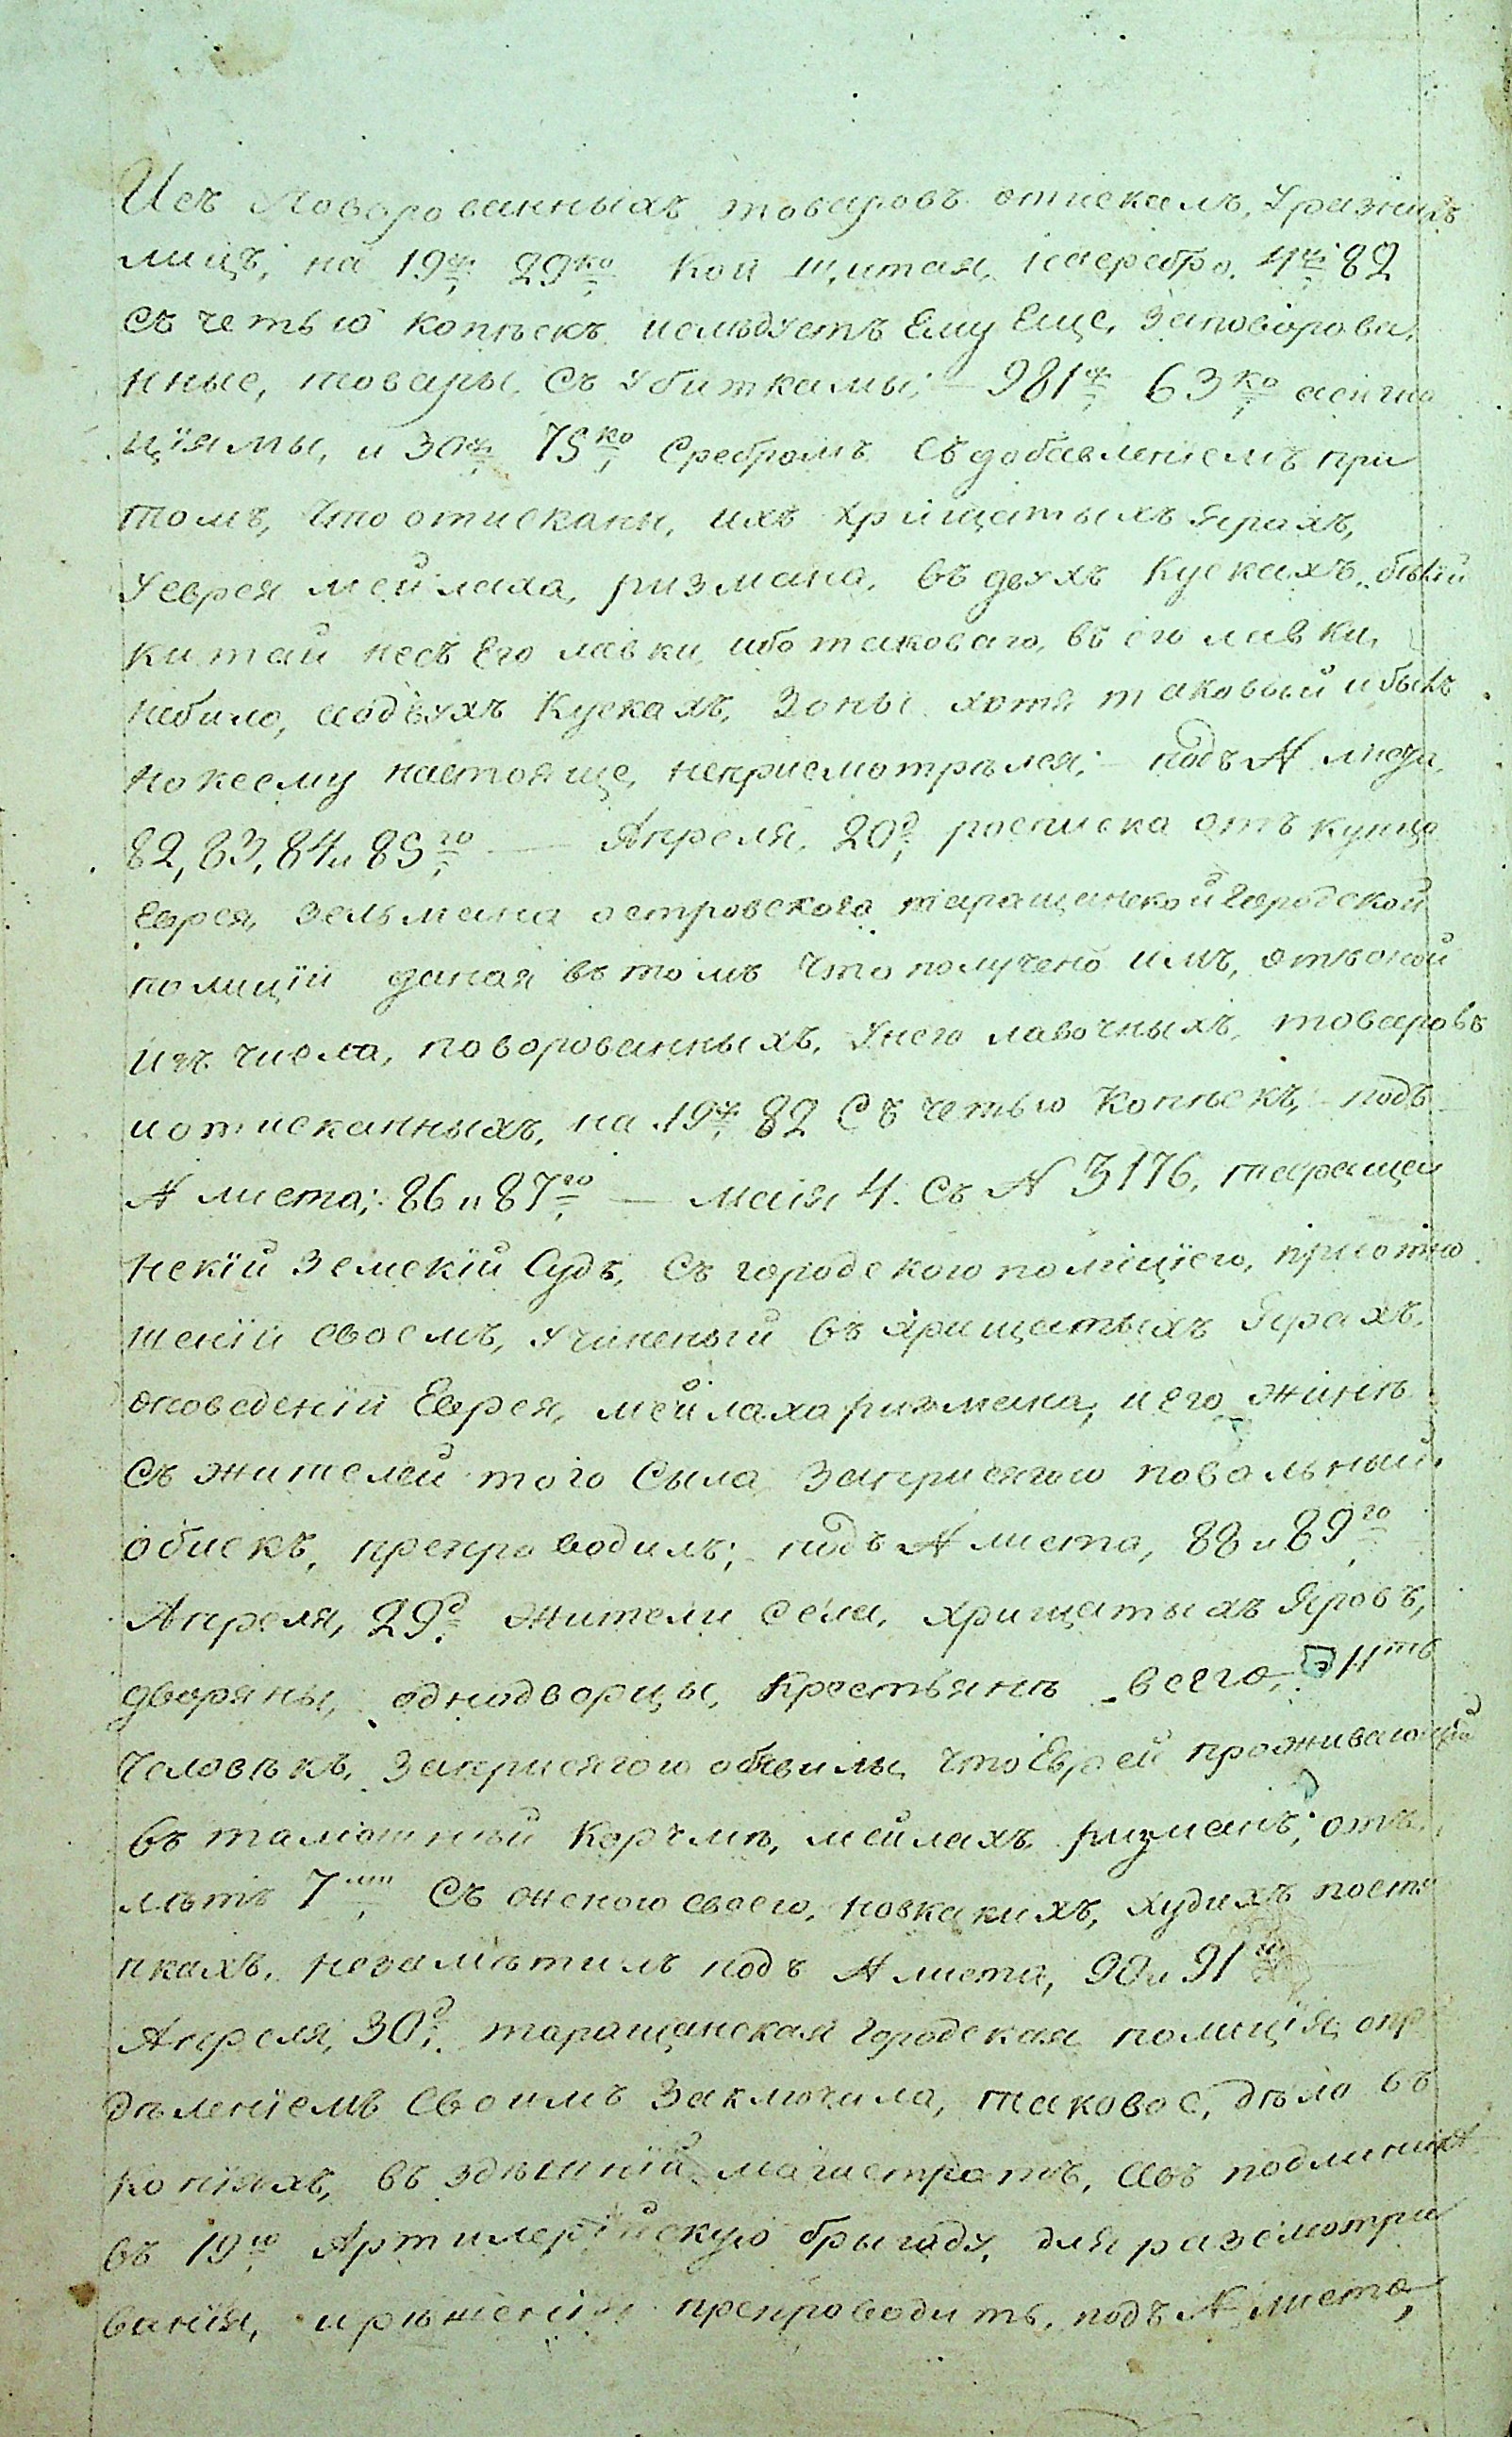 Изъ поворованныхъ товаровъ отискалъ, Уразныхъ
лицъ, на 19ру: 29ко: кои щитая, насребро. 4ру: 82
съ четью копѣекъ ислѣдуетъ Ему Еще, Заповорова,
нные, товары, Съ Убиткамы; — 981ру 63ко асигна
цїямы, и 30ру 75ко Сребромъ Съ добавленїемъ при
томъ, Что отискани, ихъ Хрищатыхъ Ярахъ,
Уеврея мейлаха, ризмана, въ двухъ Кускахъ, бѣлїй
китай несъ Его лавки, ибо таковаго, въ его лавки,
небило, аодвухъ Кускахъ, Зоны хотя таковый ибылъ
но кнему настояще, неприсмотрѣлся; — подъ № листа,
82, 83, 84 и 85го — Апреля, 20д росписка отъ купца
Еврея, Зельмана островского таращанской Городской
полицїи даная въ томъ Что получено имъ, отъоной
изъ числа, поворованныхъ, Унего лавочныхъ, товаровъ
иотисканныхъ, на 19ру 82 Съ четью Копѣекъ, — подъ
№ листа; 86 и 87го — маія 4. Съ № 3176, таращан
нский Земский Судъ, Съ городскою полицїею, приотно
шенїи своемъ, Учиненый въ Хрищатыхъ Ярахъ,
оповеденїи Еврея, мейлаха ризмана, и его жинѣ
Съ жителей того Сыла Заприсягою повальный
обискъ, препроводилъ; подъ № листа, 88 и 89го
Апреля, 29д жители села, Хрищатыхъ Яровъ,
дворяны, однодворцы, Крестьянъ всего,
Человѣкъ, Заприсягою объявилы, что Еврей проживающій
въ тамошный Корчмѣ, мейлахъ ризманъ, отъ
лѣтъ 7ми Съ женою своею, новкакихъ, худихъ посту
пкахъ, незамѣтилъ подъ № листа, 90 и 91м
Апреля, 30д таращанская Городская полицїя, опр
дѣленїемъ Своимъ Заключила, таковое, дѣло въ
Копїяхъ, въ здѣшнїй магистратъ, авъ подлиникѣ
въ 19ю Артилерїйскую бригаду, для разсмотри
ванїя, ирѣшенїя препроводить, подъ № листа,